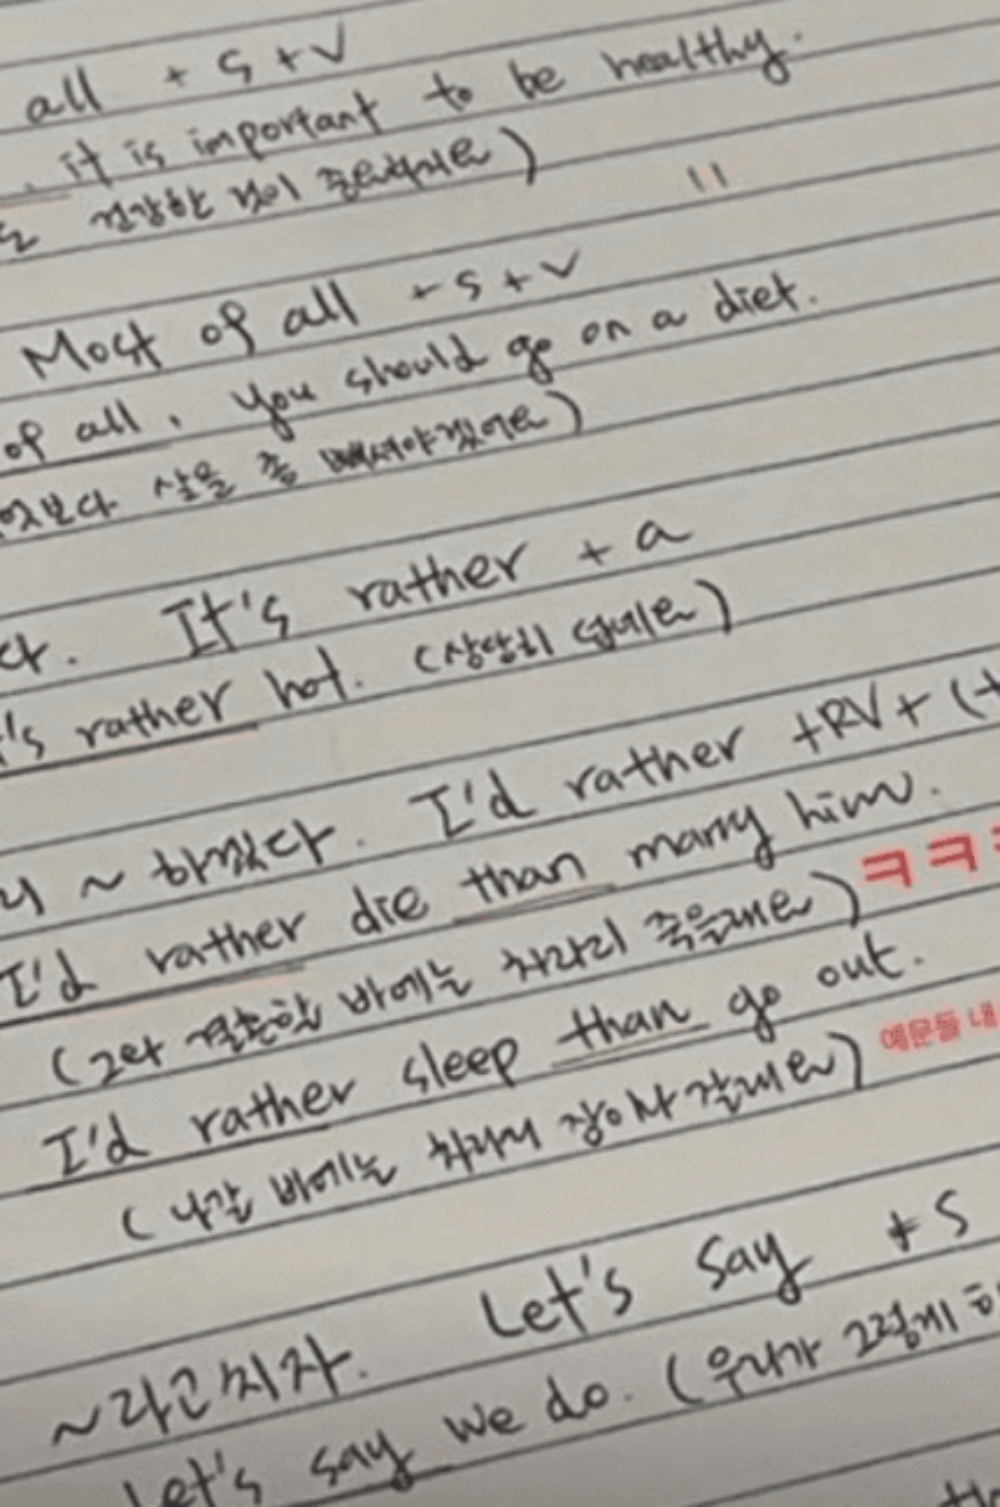 all + S + V
it is important to be healthy.
건강한 것이 중요하지요)
"
Most of all + S + V
of all, you should go on a diet.
엇보다 살을 좀 빼셔야겠어요)
다. It's rather + a
's rather hot. (상당히 덥네요)
리 ~ 하겠다. I'd rather +RV+ (+
I'd rather die than marry him.
(그와 결혼할 바에는 차라리 죽을래요) ㅋㅋㅋ
I'd rather sleep than go out.
(나갈 바에는 차라리 잠이나 잘래요) 예문들 내
~라고 치자. Let's say + S
Let's say we do. (우리가 그렇게 하